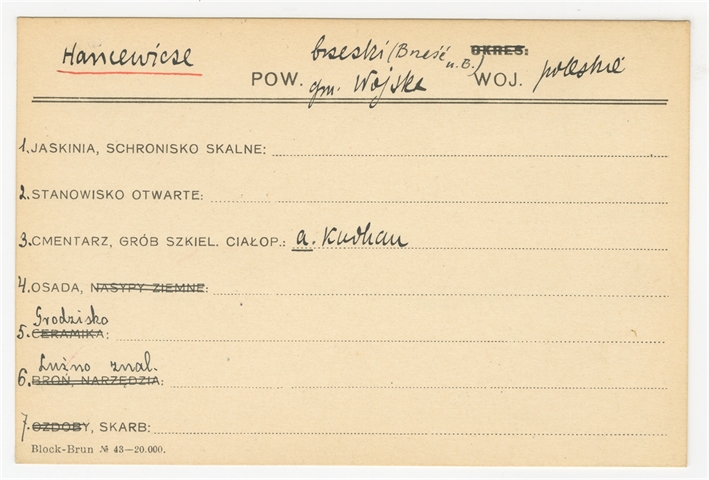 Hancewicze
brzeski (Brześć OKRES:
n.B.)
POW. gm. Wojska WOJ. poleskie
1. JASKINIA, SCHRONISKO SKALNE:
2. STANOWISKO OTWARTE:
3. CMENTARZ, GRÓB SZKIEL. CIAŁOP.: a. Kurhan
4. OSADA, NASYPY ZIEMNE:
Grodzisko
5. CERAMIKA:
Luźno znal.
6. BROŃ, NARZĘDZIA:
7. OZDOBY, SKARB:
Block-Brun № 43—20.000.